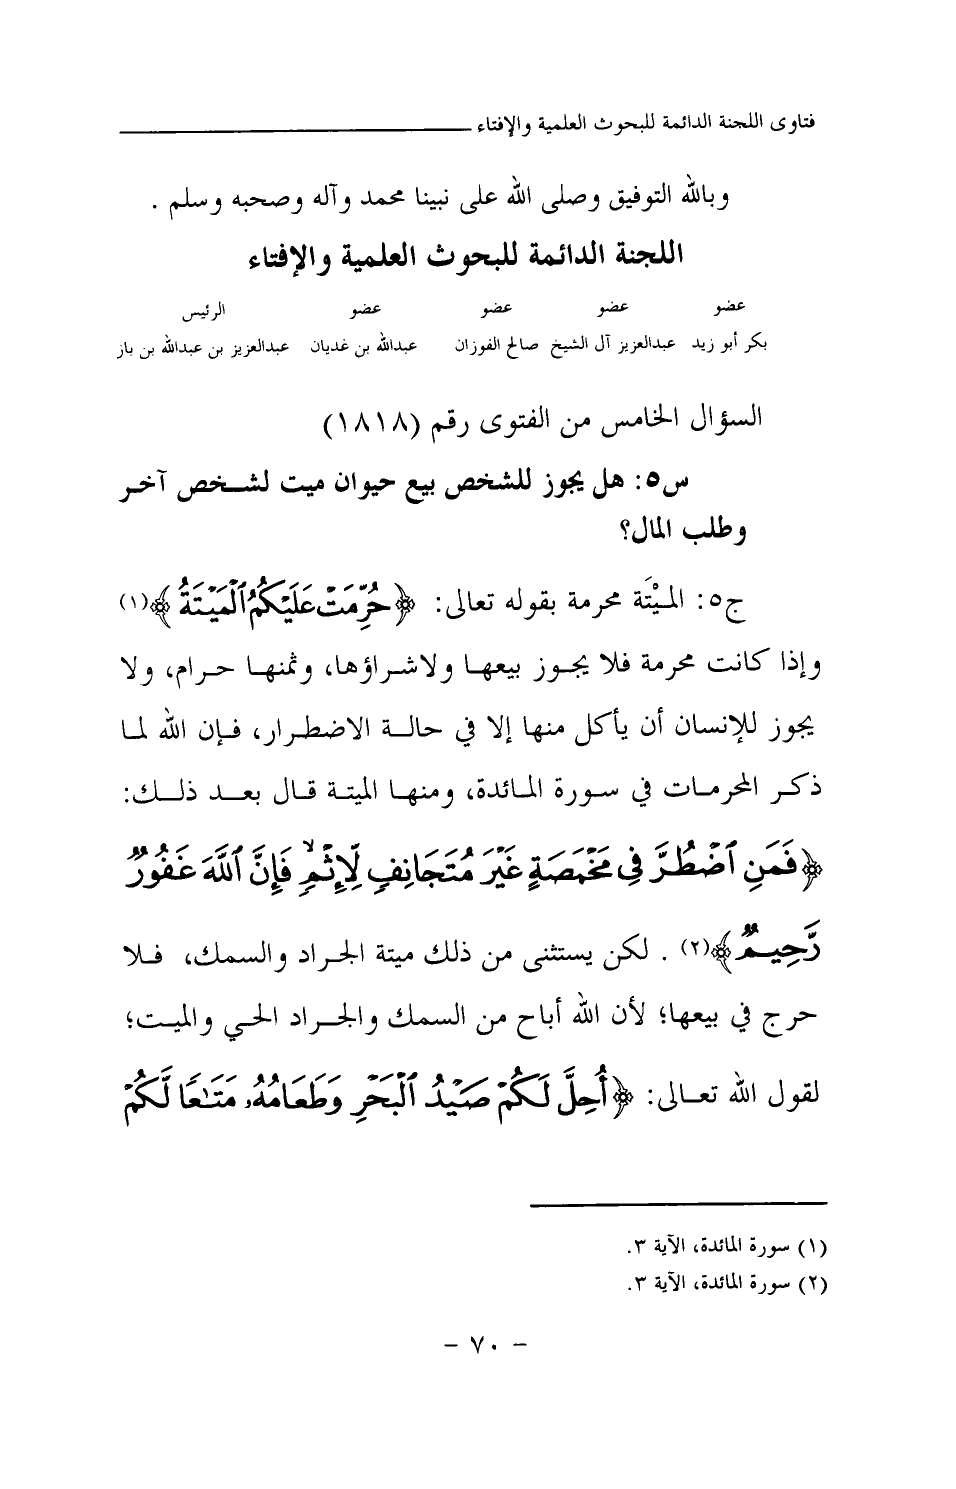 فتاوى اللجنة الدائمة للبحوث العلمية والإفتاء
وبالله التوفيق وصلى الله على نبينا محمد وآله وصحبه وسلم .
اللجنة الدائمة للبحوث العلمية والإفتاء
عضو عضو عضو عضو الرئيس
بكر أبو زيد عبدالعزيز آل الشيخ صالح الفوزان عبدالله بن غديان عبدالعزيز بن عبدالله بن باز
السؤال الخامس من الفتوى رقم (١٨١٨)
س٥: هل يجوز للشخص بيع حيوان ميت لشخص آخر
وطلب المال؟
ج٥: الميْتَة محرمة بقوله تعالى: ﴿حُرِّمَتْ عَلَيْكُمُ ٱلْمَيْتَةُ﴾(١)
وإذا كانت محرمة فلا يجوز بيعها ولاشراؤها، وثمنها حرام، ولا
يجوز للإنسان أن يأكل منها إلا في حالة الاضطرار، فإن الله لما
ذكر المحرمات في سورة المائدة، ومنها الميتة قال بعد ذلك:
﴿فَمَنِ ٱضْطُرَّ فِي مَخْمَصَةٍ غَيْرَ مُتَجَانِفٍ لِّإِثْمٍۙ فَإِنَّ ٱللَّهَ غَفُورٌ
رَّحِيمٌ﴾(٢) . لكن يستثنى من ذلك ميتة الجراد والسمك، فلا
حرج في بيعها؛ لأن الله أباح من السمك والجراد الحي والميت؛
لقول الله تعالى: ﴿أُحِلَّ لَكُمْ صَيْدُ ٱلْبَحْرِ وَطَعَامُهُۥ مَتَـٰعًا لَّكُمْ
(١) سورة المائدة، الآية ٣.
(٢) سورة المائدة، الآية ٣.
- ٧٠ -